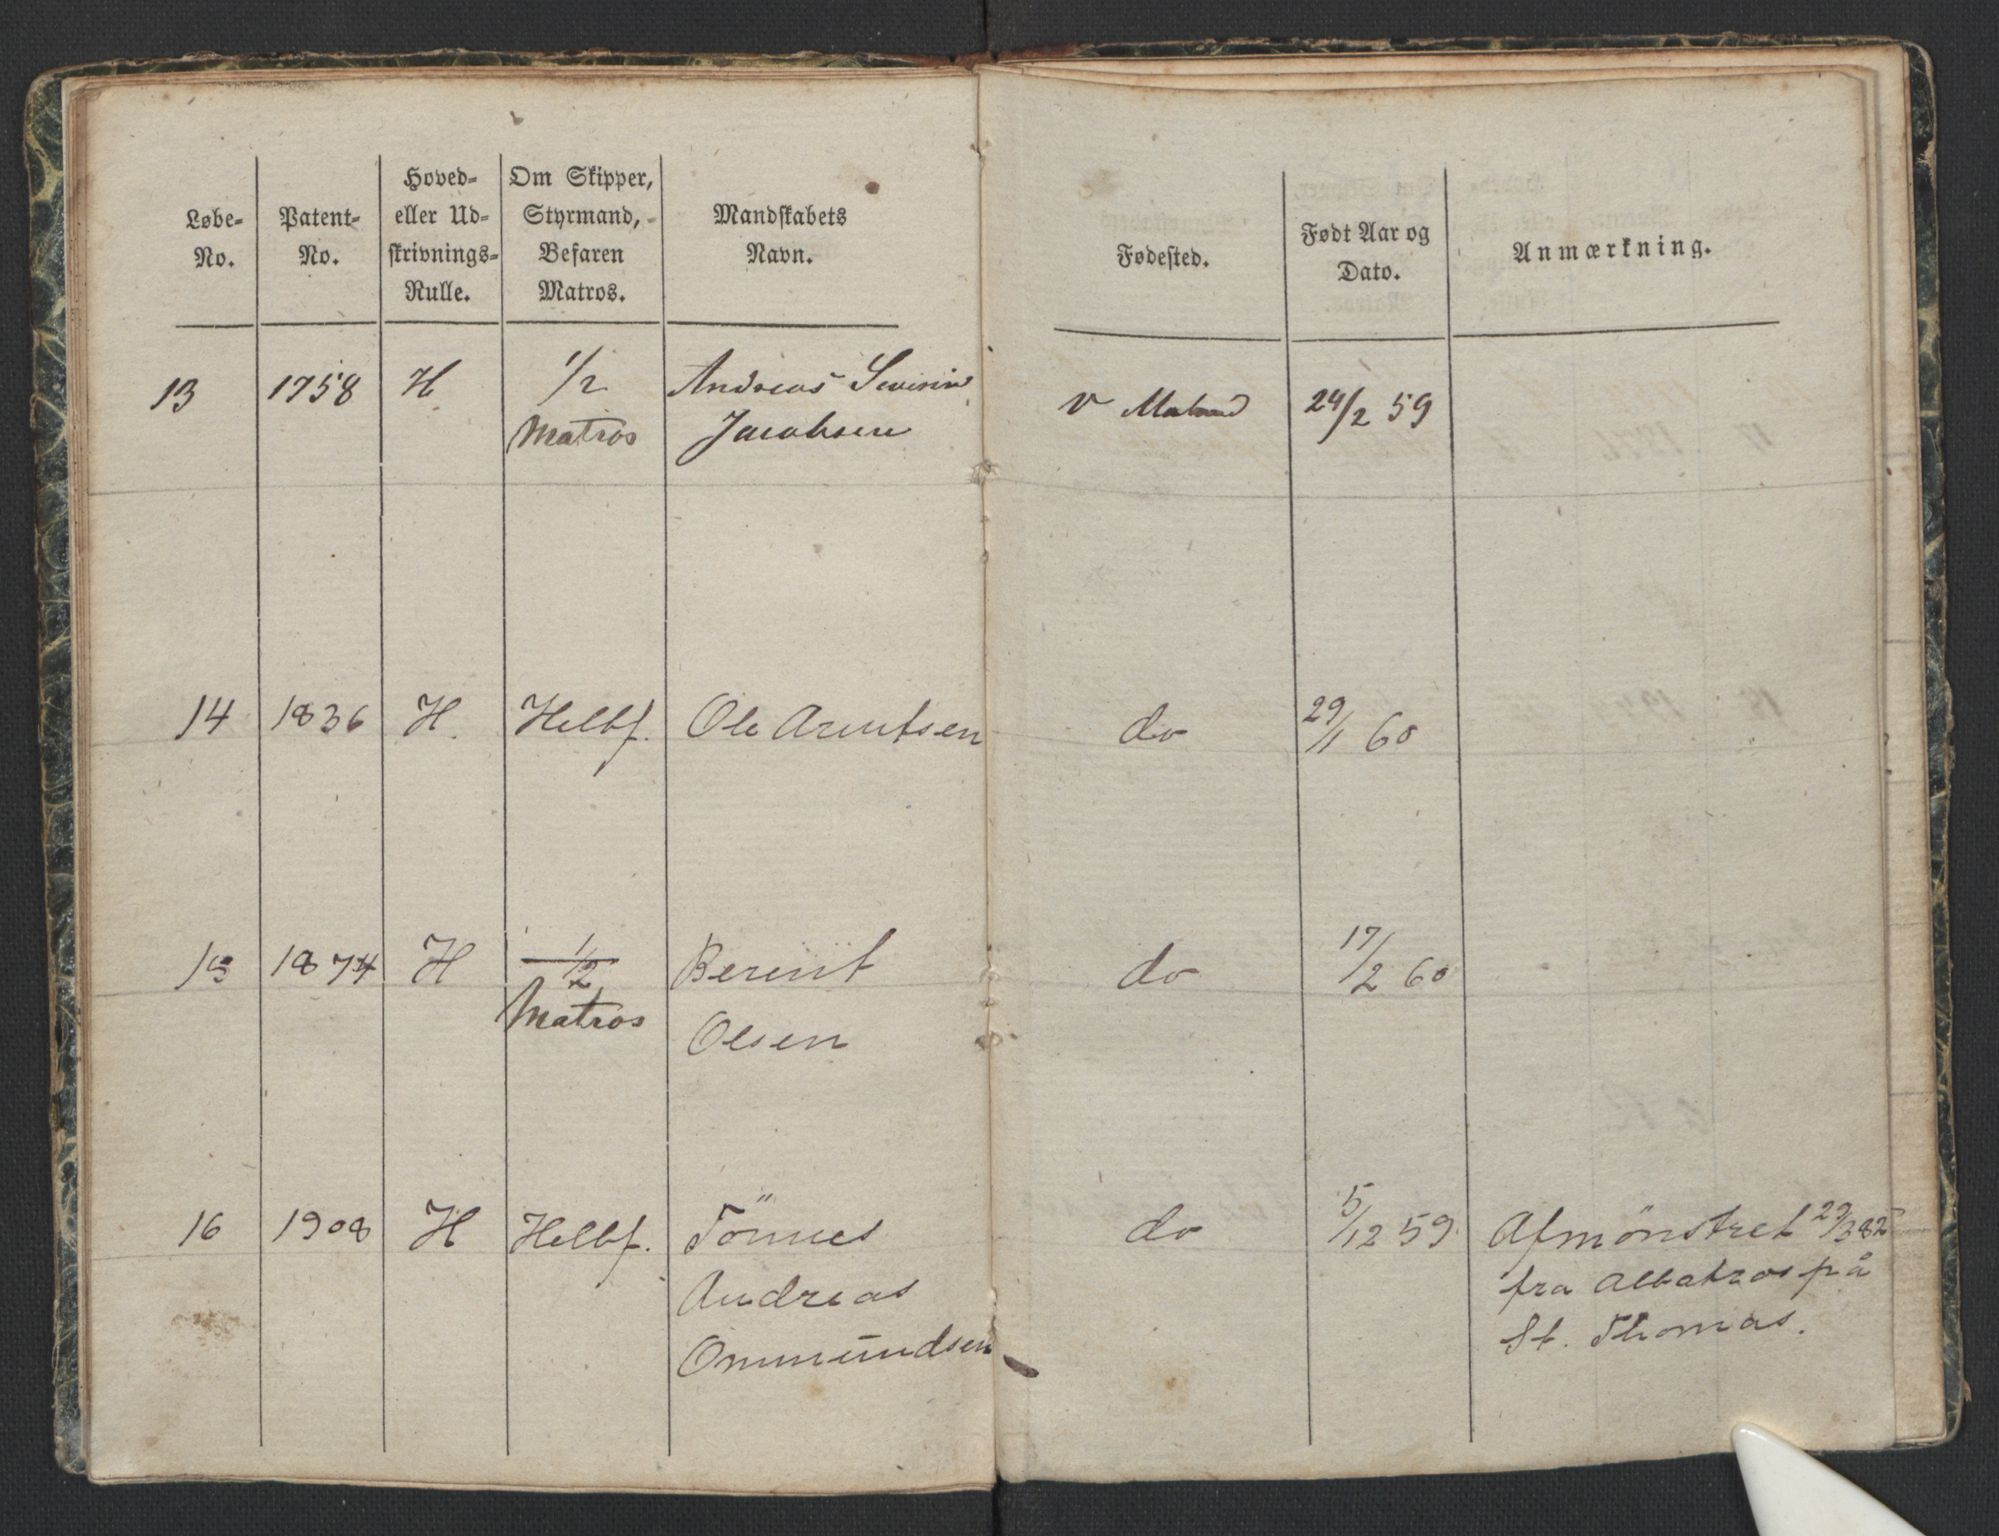 Løbe-No.
Patent-No.
Hoved- eller Ud-skrivnings-Rulle.
Om Skipper, Styrmand, Befaren Matros.
Mandskabets Navn.
Fødested.
Født Aar og Dato.
Anmærkning.
13 1758 H 1/2 Andreas Severin v 24/2 59
Matros Jacobsen
14 1836 H. Helbf. Ole Arntsen do 29/1 60
15 1874 H 1/2 Berent do 17/2 60
Matros Olsen
16 1908 H Helbf. Tönnes do 5/12 59 Afmönstret 29/3 82
Andreas fra Albatros på
Ommundsen St. Thomas.